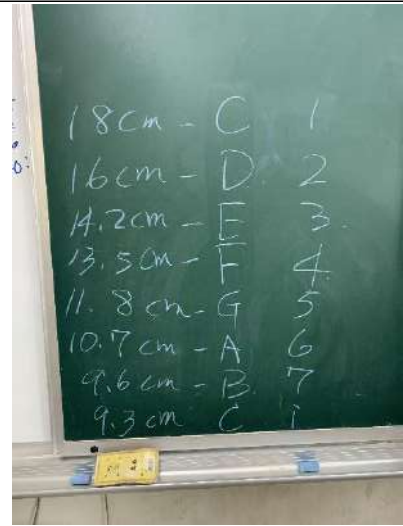 18cm - C 1
16cm - D 2
14.2cm - E 3.
13.5cm - F 4
11.8cm - G 5
10.7cm - A 6
9.6cm - B 7
9.3cm C i